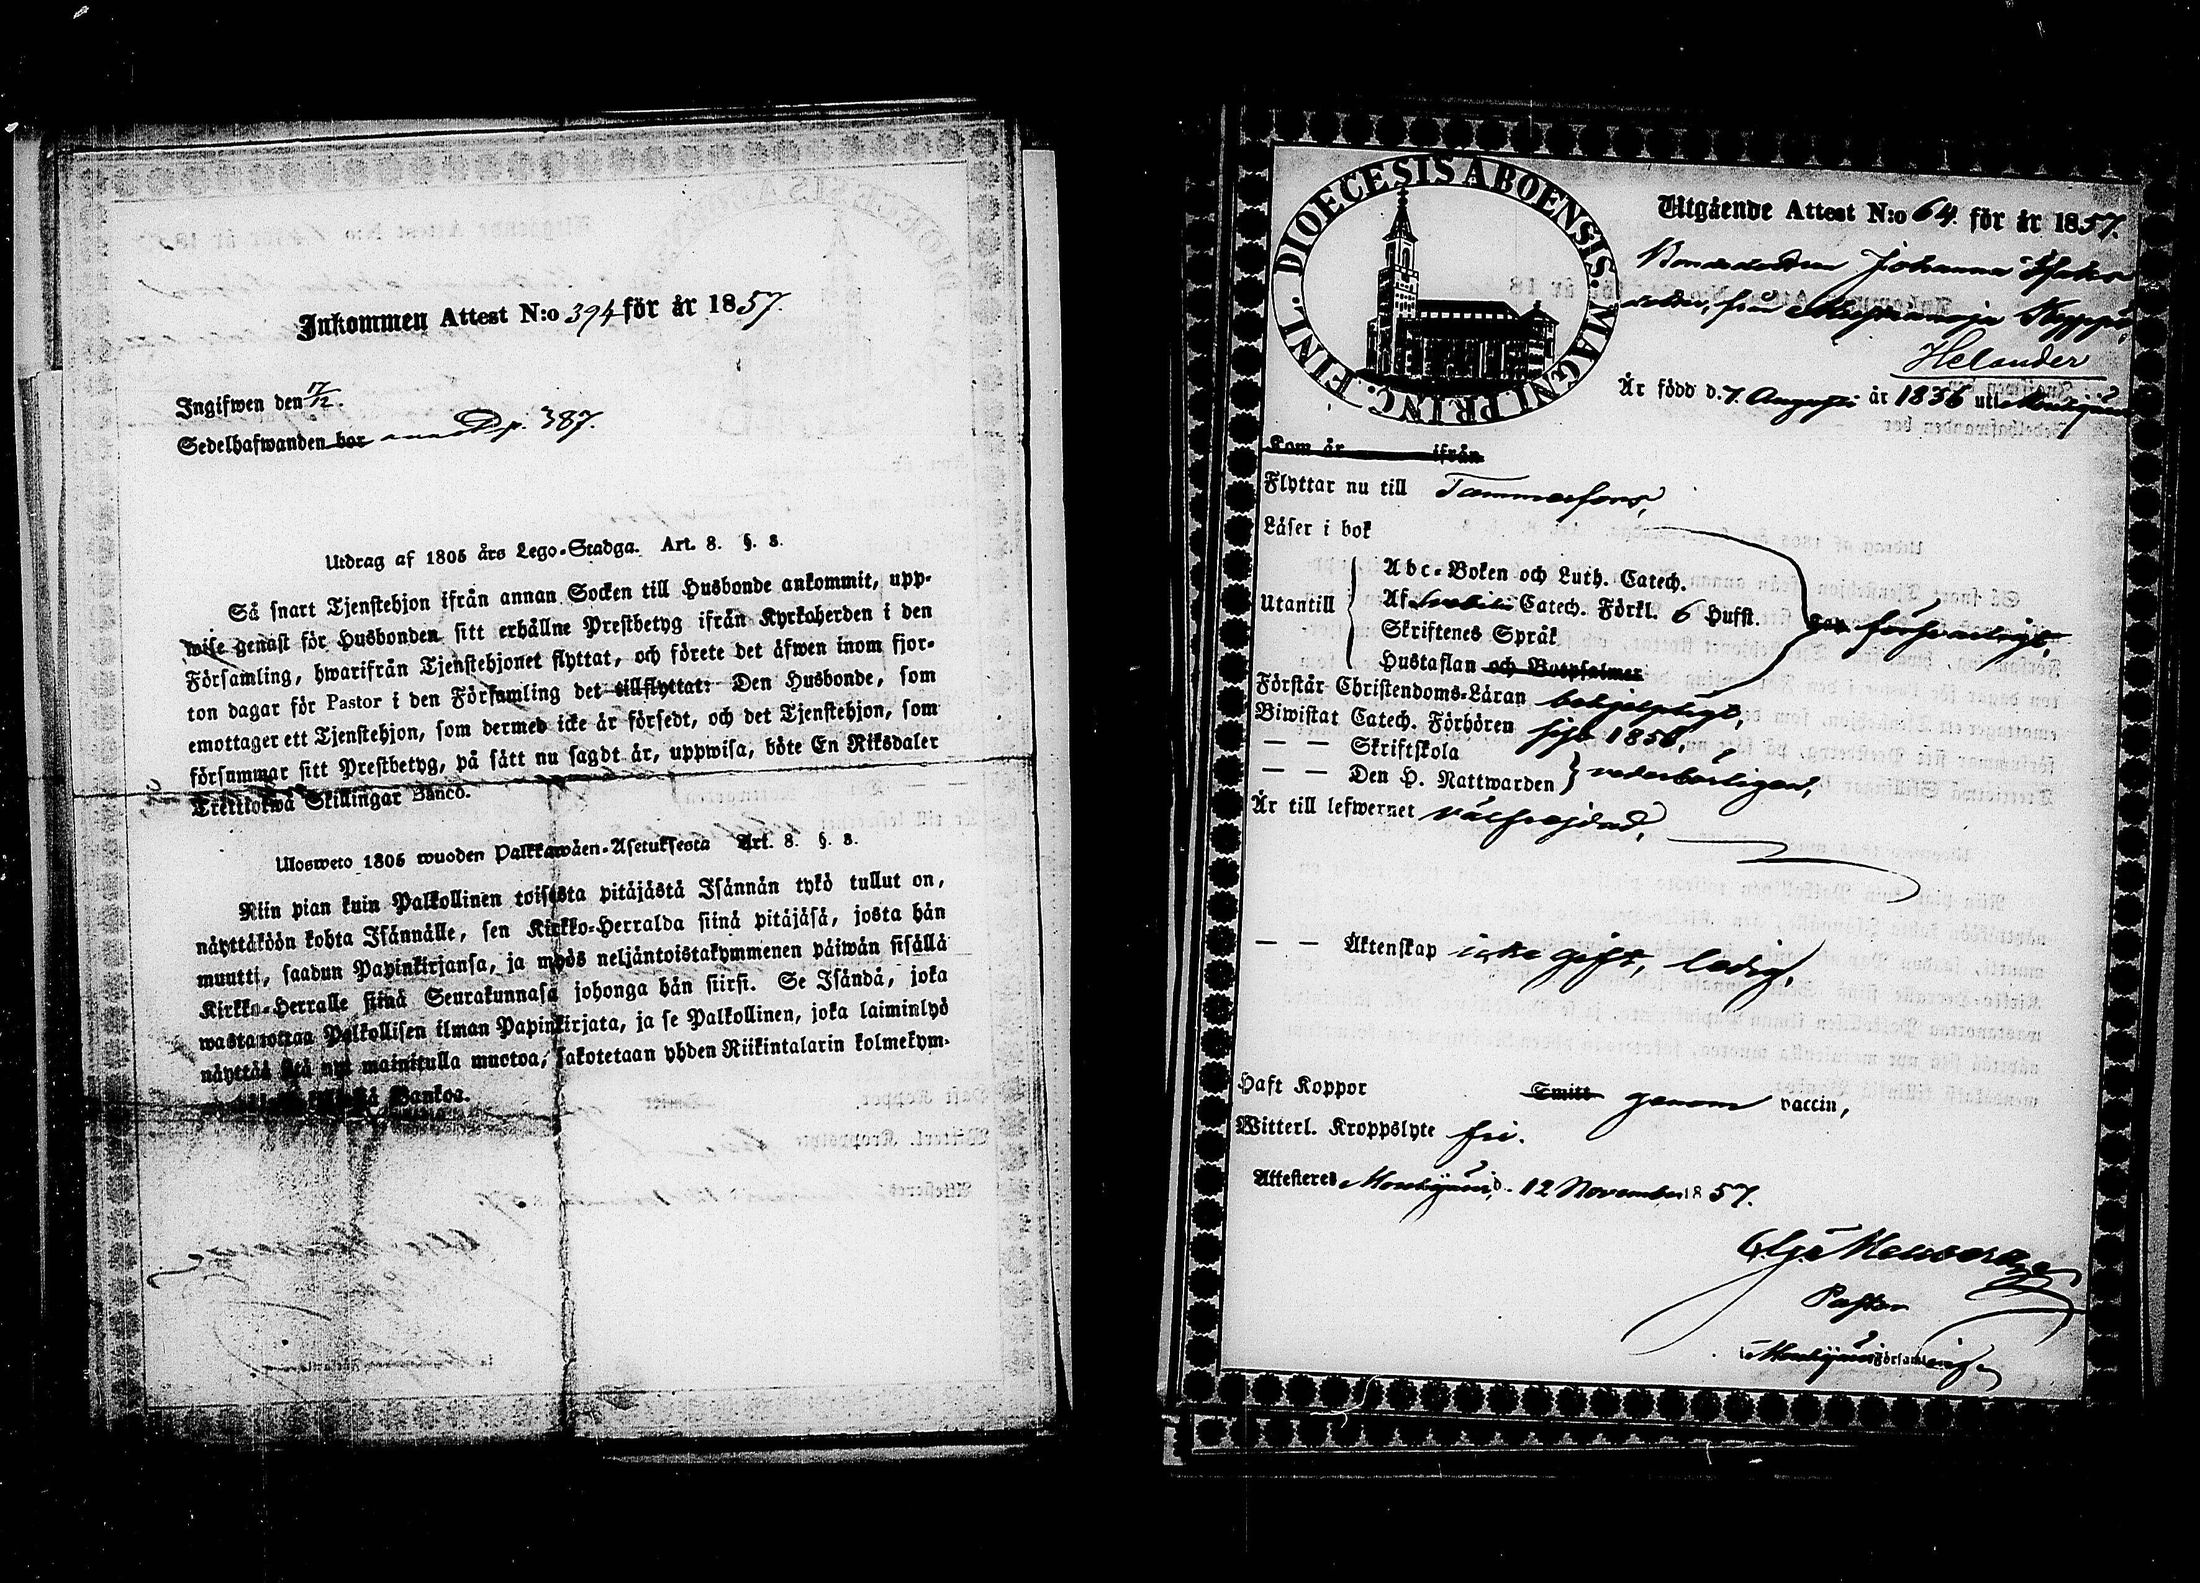 Inkommen Attest N:o 394 för år 1857.
Ingifwen den 17/12.
Sedelhafwanden bor D p. 387.
Utdrag af 1805 års Lego-Stadga. Art. 8. §. 8.
Så snart Tjenstehjon ifrån annan Socken till Husbonde ankommit, upp-
wise genast för Husbonden sitt erhållne Prestbetyg ifrån Kyrkoherden i den
Församling, hwarifrån Tjenstehjonet flyttat, och förete det äfwen inom fjor-
ton dagar för Pastor i den Församling det tillflyttat: Den Husbonde, som
emottager ett Tjenstehjon, som dermed icke är försedt, och det Tjenstehjon, som
försummar sitt Prestbetyg, på sätt nu sagdt är, uppwisa, böte En Riksdaler
Trettiotwå Skillingar Banco.
Ulosweto 1805 wuoden Palkkawäen-Asetuksesta Art. 8. §. 8.
Niin pian kuin Palkollinen toisesta pitäjästä Isännän tykö tullut on,
näyttäköön kohta Isännälle, sen Kirkko-Herralda siinä pitäjäsä, josta hän
muutti, saadun Papinkirjansa, ja myös neljäntoistakymmenen päiwän sisällä
Kirkko-Herralle siinä Seurakunnasa johonga hän siirsi. Se Isändä, joka
wastanottaa Palkollisen ilman Papinkirjata, ja se Palkollinen, joka laiminlyö
näyttää sitä nyt mainitulla muotoa, sakotetaan yhden Riikintalarin kolmekym-
Bankoa.
DIOECESIS ABOENSIS. MAGNI PRINC. FINL.
Utgående Attest N:o 64. för år 1857.
Bondedottren Johanna
från Kyppö,
Helander
Är född d. 7. Augusti år 1836 uti
Kom år ifrån
Flyttar nu till Tammerfors,
Läser i bok
Utantill
Abc-Boken och Luth. Catech.
Af Svebilii Catech. Förkl. 6 Hufst.
Skriftenes Språk
Hustaflan och Botpsalmer
försvarligt,
Förstår Christendoms-Läran behjelpligt,
Biwistat Catech. Förhören 1856,
— — Skriftskola
— — Den H. Nattwarden } vederbörligen,
Är till lefwernet välfrejdad,
— — Äktenskap icke gift, ledig,
Haft Koppor Smitt genom vaccin,
Witterl. Kroppslyte fri.
Attesteres Mouhijärvi, d. 12 November 1857.
Pastor
i Mouhijärvi Församling